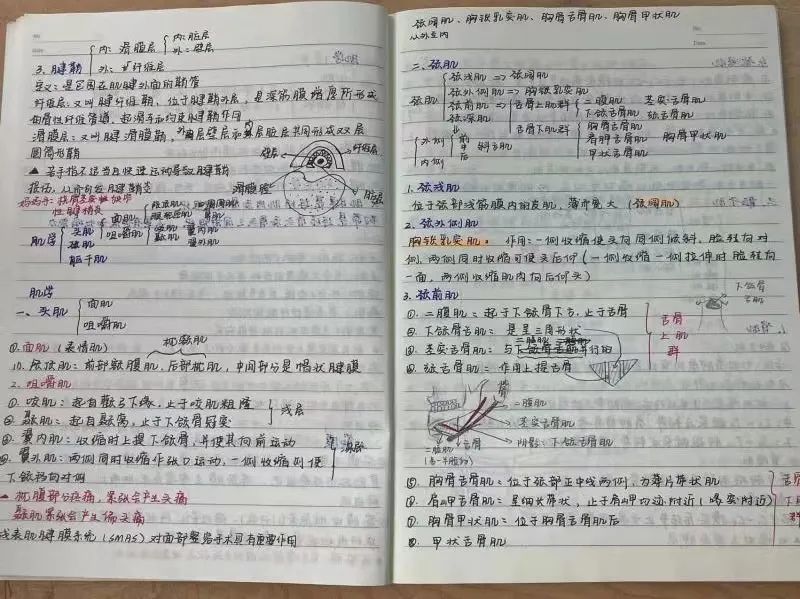 内:滑膜层 内:脏层
外:壁层
3. 腱鞘 外:纤维层
定义:是包围在肌腱外面的鞘管
纤维层:又叫腱纤维鞘、位于腱鞘外层,是深筋膜增厚所形成
的骨性纤维管道,起滑车和约束肌腱作用
滑膜层:又叫腱滑膜鞘,由壁层和脏层共同形成双层
圆筒形鞘
壁层 纤维层
▲ 若手指不适当且快速运动导致腱鞘
损伤,从而引发腱鞘炎
滑膜腔
脏层
妈妈手:桡骨茎突狭窄
性腱鞘炎
肌学 头肌 面肌
咀嚼肌 咬肌 翼内肌
颈肌 颞肌 翼外肌
躯干肌
肌学
一、头肌 面肌
咀嚼肌
①面肌(表情肌) 枕额肌
颅顶肌:前部额腹肌,后部枕肌,中间部分是帽状腱膜
2. 咀嚼肌
① 咬肌:起自颧弓下缘,止于咬肌粗隆
② 颞肌:起自颞窝,止于下颌骨冠突
浅层
③ 翼内肌:收缩时上提下颌骨,并使其向前运动
④ 翼外肌:两侧同时收缩作张口运动,一侧收缩则使
深层
下颌移向对侧
▲ 枕腹部分疼痛,紧张会产生头痛
颞肌紧张会产生偏头痛
浅表肌腱膜系统(SMAS)对面部整容手术具有重要作用
颈阔肌、胸锁乳突肌、胸骨舌骨肌、胸骨甲状肌
从外至内
二、颈肌
颈肌 颈浅肌 => 颈阔肌
颈外侧肌 => 胸锁乳突肌
颈前肌 => 舌骨上肌群 二腹肌 茎突舌骨肌
下颌舌骨肌 颏舌骨肌
颈深肌 舌骨下肌群 胸骨舌骨肌
肩胛舌骨肌 胸骨甲状肌
甲状舌骨肌
外侧 前 中 后 斜角肌
内侧
1. 颈浅肌
位于颈部浅筋膜内的皮肌,薄而宽大(颈阔肌)
2. 颈外侧肌
胸锁乳突肌。作用:一侧收缩使头向同侧倾斜,脸转向对
侧,两侧同时收缩可使头后仰(一侧收缩一侧拉伸时脸转向
一面,两侧收缩肌肉向后仰头)
3. 颈前肌
下颌骨
舌骨
①. 二腹肌:起于下颌骨下方,止于舌骨
②. 下颌舌骨肌:是呈三角形状
③. 茎突舌骨肌:与二腹肌并行的
④. 颏舌骨肌:作用上提舌骨
舌骨
上肌
群
二腹肌
茎突舌骨肌
阴影:下颌舌骨肌
二腹肌
舌骨
⑤. 胸骨舌骨肌:位于颈部正中线两侧,为薄片带状肌
⑥. 肩胛舌骨肌:呈细长带状,止于肩胛切迹附近(喙突附近)
⑦. 胸骨甲状肌:位于胸骨舌骨肌后
⑧. 甲状舌骨肌
舌骨
下肌
群